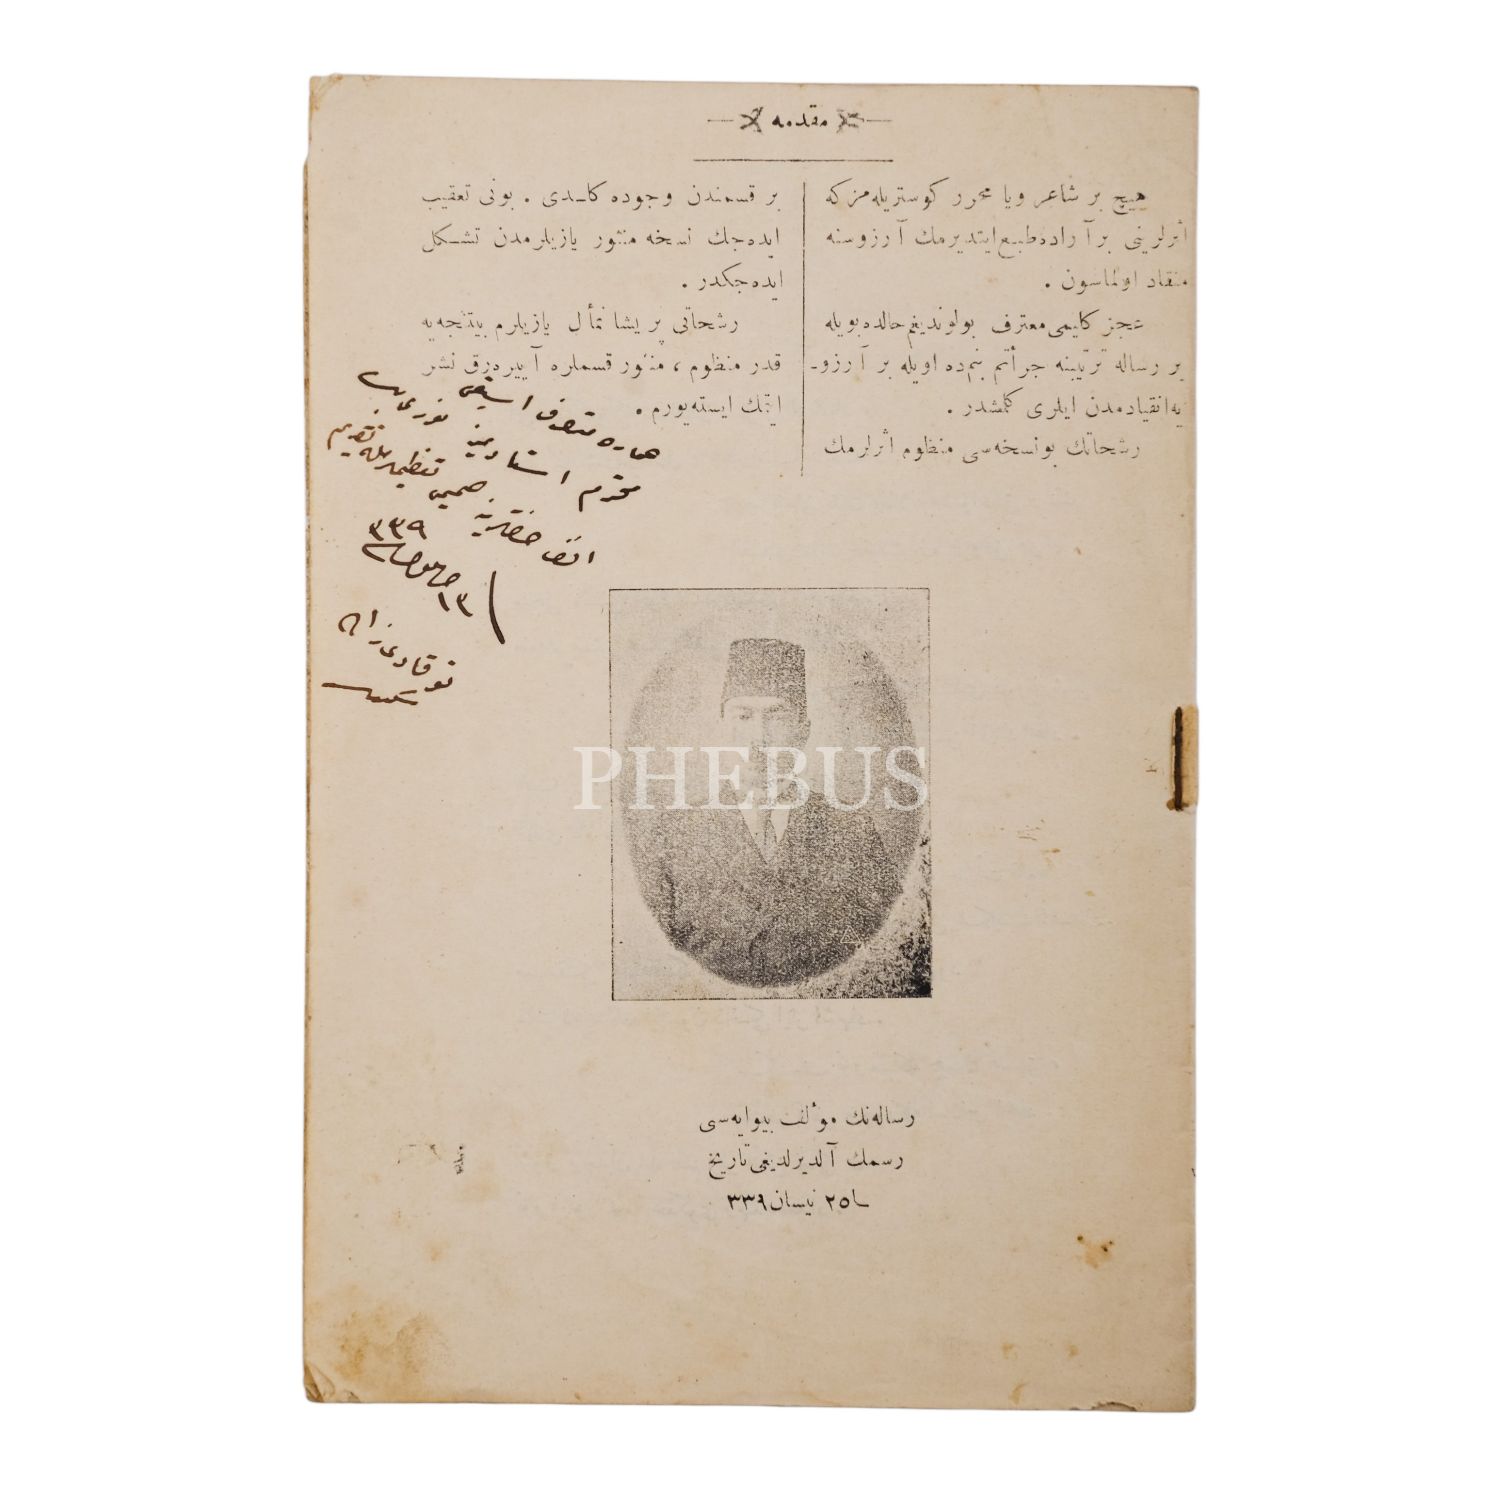 مقدمه
هیچ بر شاعر ویا محرر کوستریله‌مز که
أثرلرینی بر آراده طبع ایتدیرمك آرزوسنه
منقاد اولماسون .
عجز کلیمی معترف بولوندیغم حالده بویله
بر رساله ترتیبنه جرأتم بنم‌ده اویله بر آرزو-
یه انقیادمدن ایلری کلمشدر .
رشحاتك بو نسخه‌سی منظوم أثرلرمك
بر قسمندن وجوده کلـدی . بونی تعقیب
ایده‌جك نسخه منثور یازیلرمدن تشـکل
ایده‌جکدر .
رشحاتی پریشا نمأل یازیلرم بیتنجه‌یه
قدر منظوم ، منثور قسملره آییره‌رق نشر
ایتمك ایسته‌یورم .
متصرف اسبقی نوری بك
محترم استادیمز
صمیمی تعظیمله تقدیم
افندی حضرتلرینه
٣٣٩
١٣
PHEBUS
رساله‌نك موألف بینوایه‌سی
رسمك آلدیرلدیغی تاریخ
٢٥ نیسان ٣٣٩